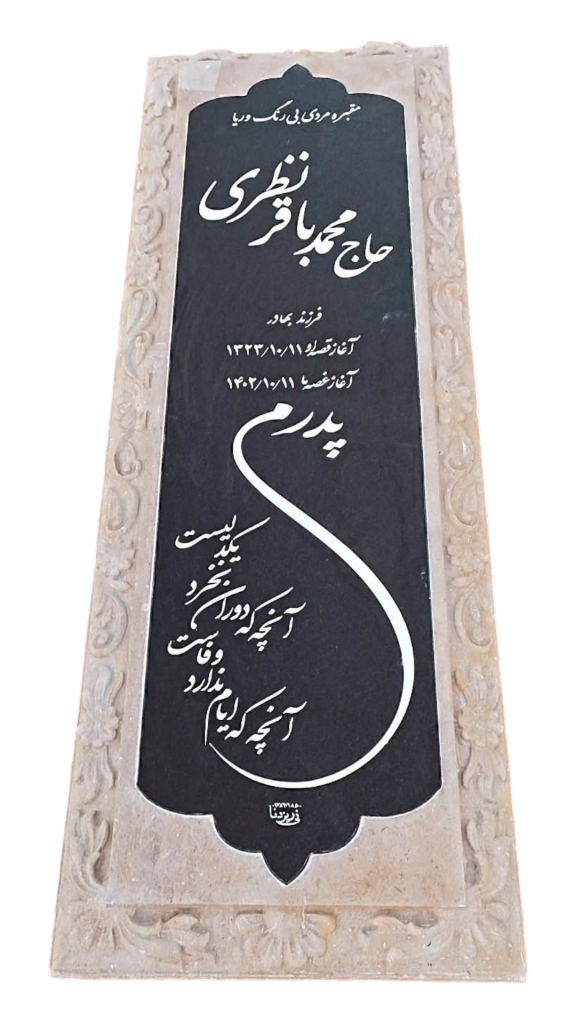 مقبره مردی بی رنگ و ریا
حاج محمد باقر نظری
فرزند بهادر
آغاز قصه او ۱۳۲۳/۱۰/۱۱
آغاز غصه ما ۱۴۰۲/۱۰/۱۱
پدرم
آنچه که دوران نخرد یکدلیست
آنچه که ایام ندارد وفاست
نی ریز دنا